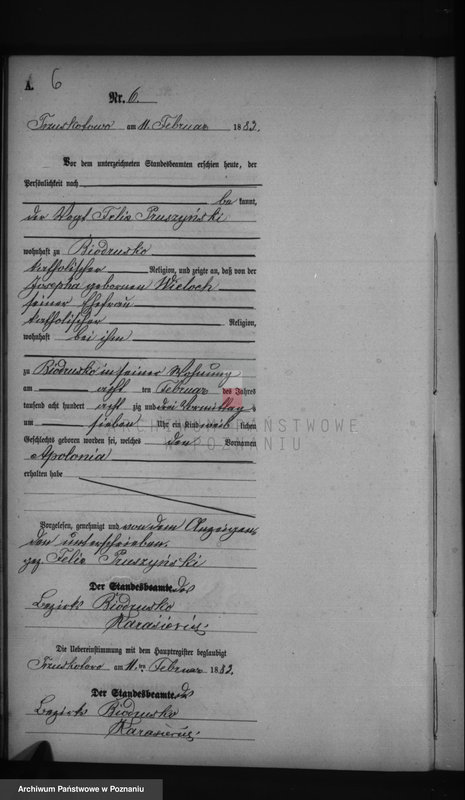 A. 6
Nr. 6.
Truskotowo am 11. Februar 1883.
Vor dem unterzeichneten Standesbeamten erschien heute, der
Persönlichkeit nach
be kannt,
der Vogt Felix Pruszyński
wohnhaft zu Biodrusko
katholischer Religion, und zeigte an, daß von der
Josepha gebornen Wieloch
seiner Ehefrau
katholischer Religion,
wohnhaft bei ihm
zu Biodrusko in seiner Wohnung
am acht ten Februar des Jahres
tausend acht hundert acht zig und drei Vormittag s
um sieben Uhr ein Kind weib lichen
Geschlechts geboren worden sei, welches den Vornamen
Apolonia
erhalten habe
Vorgelesen, genehmigt und von dem Anzeigen
den unterschrieben.
gez Felix Pruszyński
Der Standesbeamte des
Bezirks Biodrusko
Karasiewicz
Die Uebereinstimmung mit dem Hauptregister beglaubigt
am 11. ten Februar 1883.
Der Standesbeamte des
Bezirks Biodrusko
Karasiewicz
ARCHIWUM PAŃSTWOWE
W POZNANIU
Archiwum Państwowe w Poznaniu